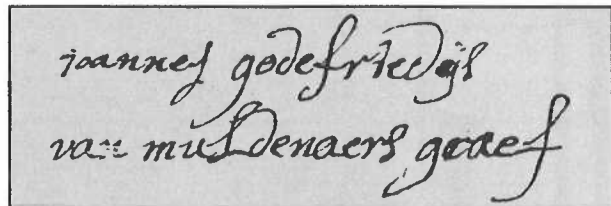 ioannes godefriedijs
van muldenaers graef